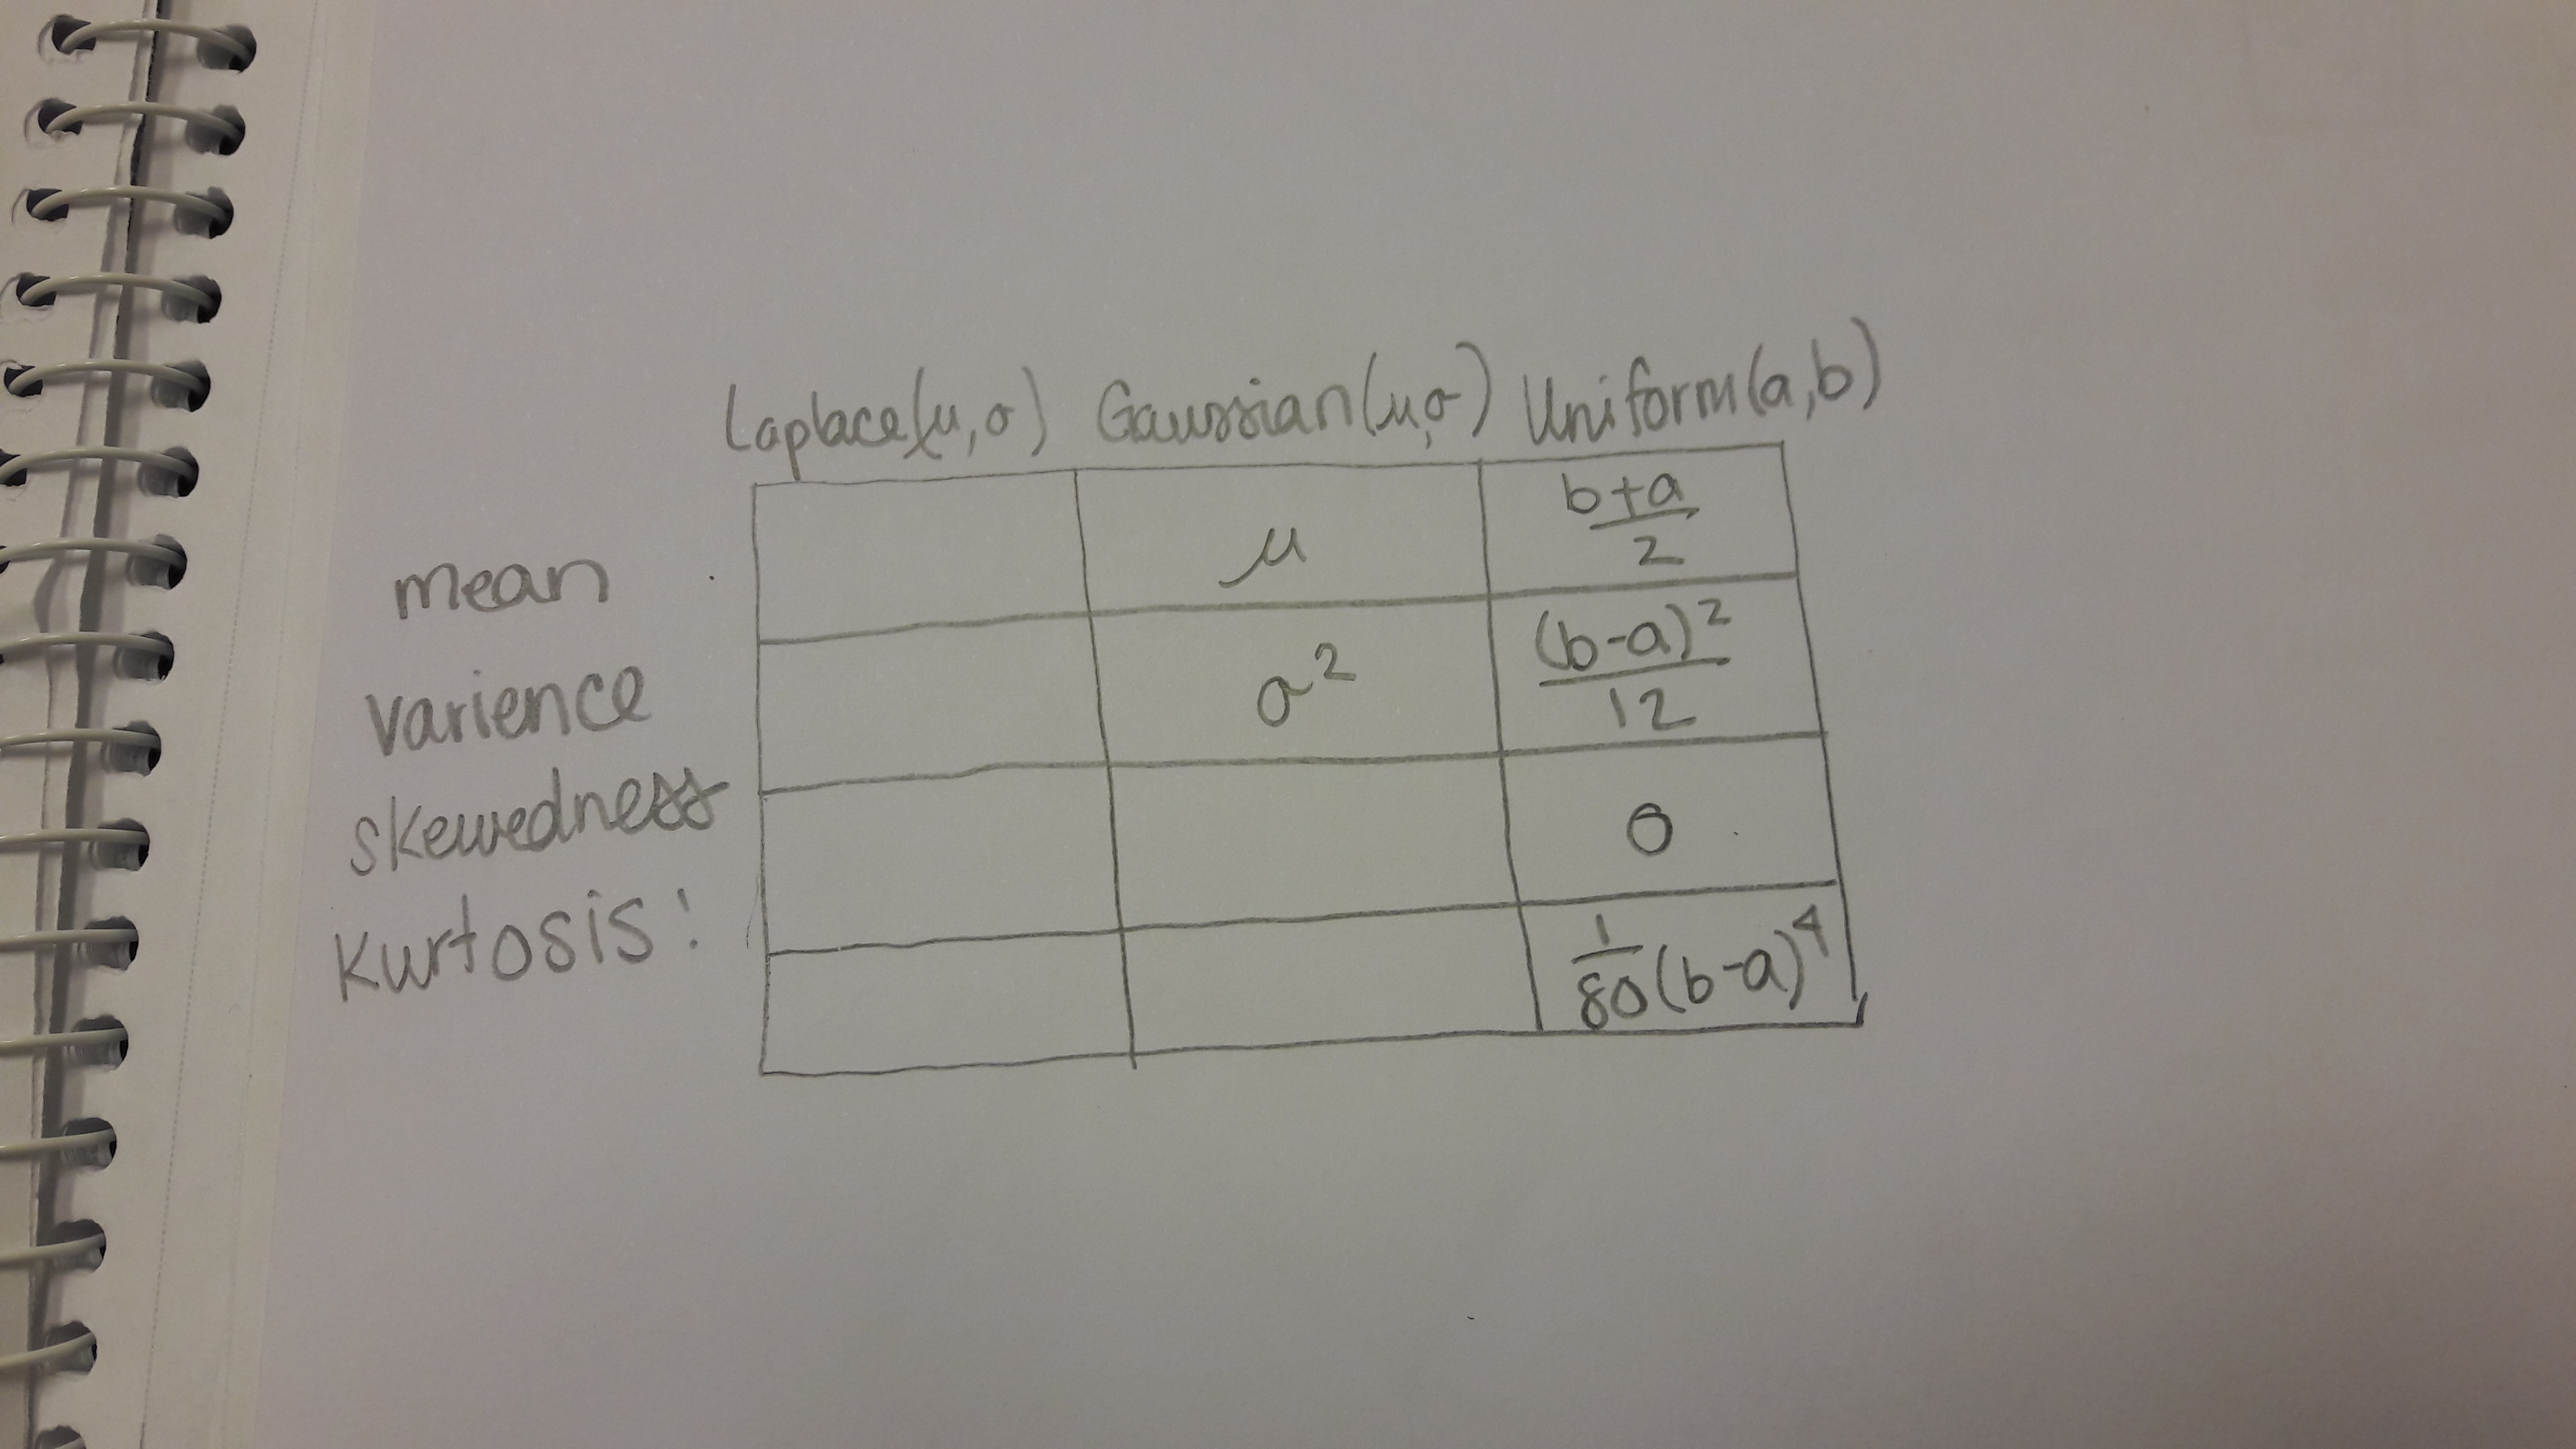 Laplace(μ,σ) Gaussian(μ,σ) Uniform(a,b)
mean μ b+a/2
varience σ² (b-a)²/12
skewedness 0
Kurtosis: 1/80(b-a)⁴